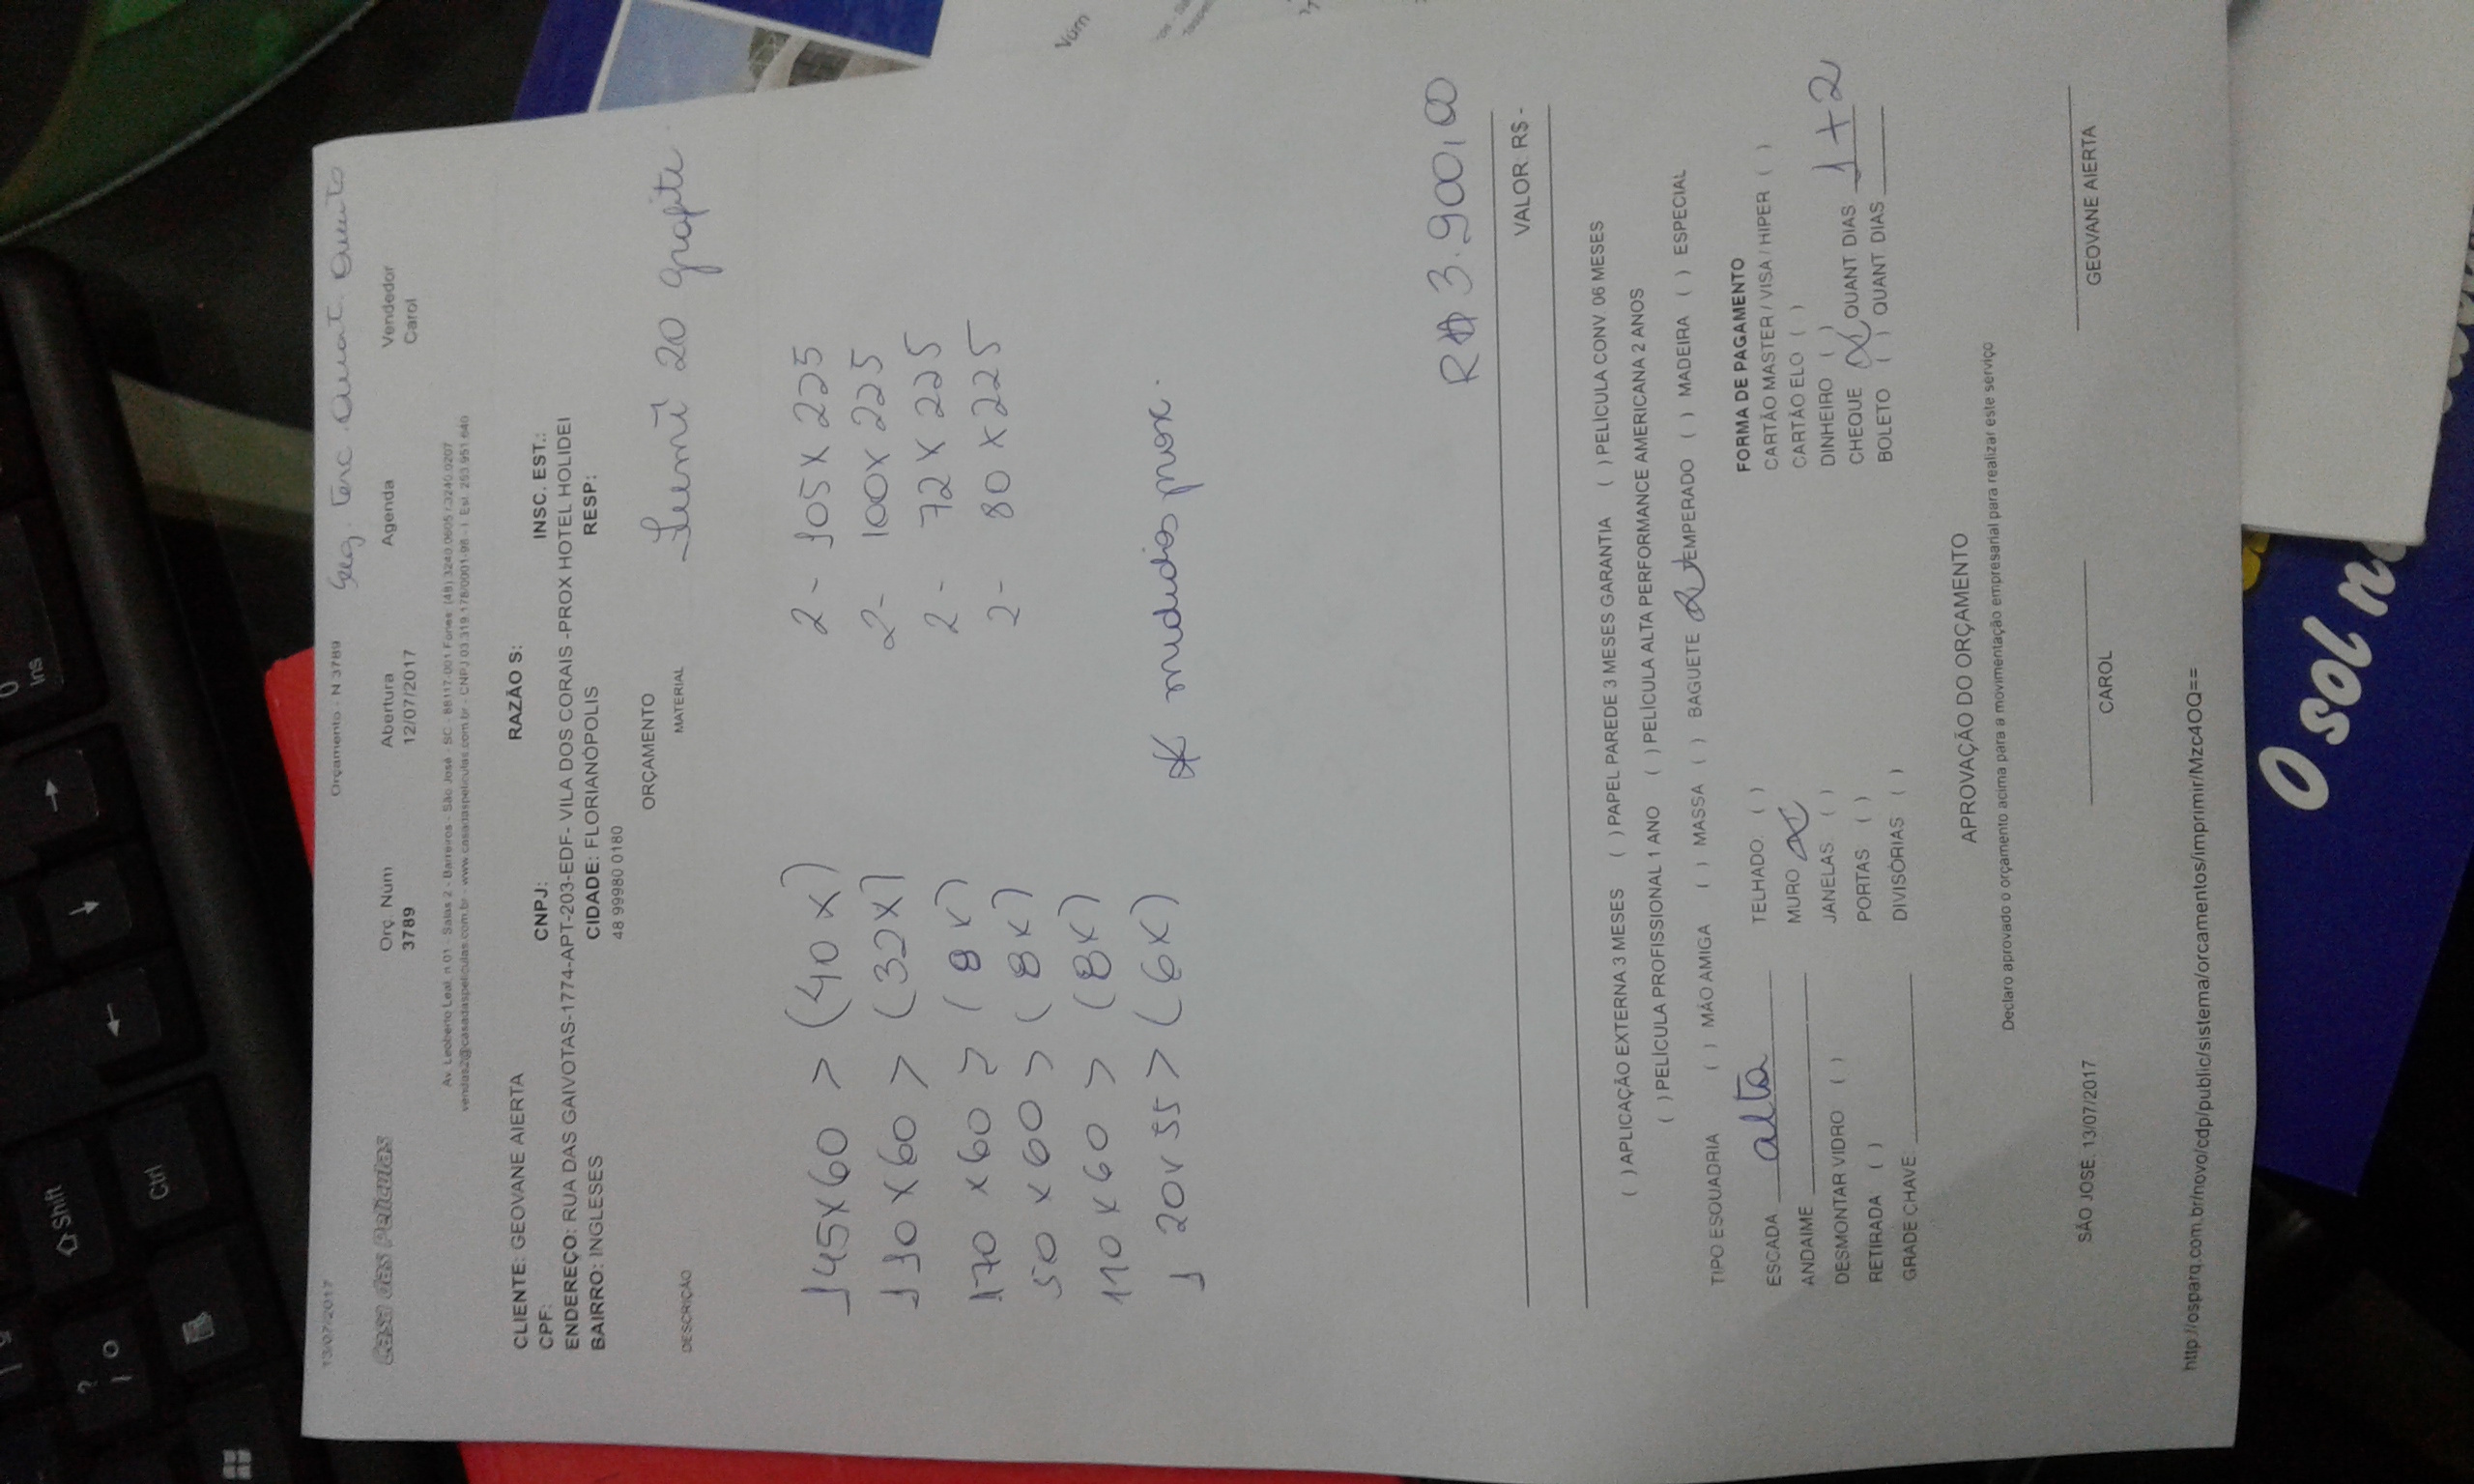 13/07/2017 Orçamento - N 3789
Seg. Terc.
Casa das Películas Orç. Num Abertura Agenda Vendedor
3789 12/07/2017 Carol
Av. Leoberto Leal, n.01 - Salas 2 - Barreiros - São José - SC - 88117-001 Fones: (48) 3240.0605 / 3240.0207
vendas2@casadaspeliculas.com.br - www.casadaspeliculas.com.br - CNPJ 03.319.178/0001-98 - I. Est. 253.951.640
CLIENTE: GEOVANE AIERTA RAZÃO S:
CPF: CNPJ: INSC. EST.:
ENDEREÇO: RUA DAS GAIVOTAS-1774-APT-203-EDF- VILA DOS CORAIS -PROX HOTEL HOLIDEI
BAIRRO: INGLESES CIDADE: FLORIANÓPOLIS RESP:
48 99980 0180
ORÇAMENTO
DESCRIÇÃO MATERIAL
Semi 20 grafite
145x60 > (40x) 2 - 105 x 225
110x60 > (32x) 2 - 100 x 225
170 x 60 > (8x) 2 - 72 x 225
50 x 60 > (8x) 2 - 80 x 225
110 x 60 > (8x)
120 x 55 > (6x) * medidas prox.
R$ 3.900,00
VALOR: R$ -
( ) APLICAÇÃO EXTERNA 3 MESES ( ) PAPEL PAREDE 3 MESES GARANTIA ( ) PELÍCULA CONV 06 MESES
( ) PELÍCULA PROFISSIONAL 1 ANO ( ) PELÍCULA ALTA PERFORMANCE AMERICANA 2 ANOS
TIPO ESQUADRIA ( ) MÃO AMIGA ( ) MASSA ( ) BAGUETE (x) TEMPERADO ( ) MADEIRA ( ) ESPECIAL
ESCADA alta TELHADO ( )
ANDAIME MURO (x)
DESMONTAR VIDRO ( ) JANELAS ( )
RETIRADA ( ) PORTAS ( )
GRADE CHAVE: DIVISÓRIAS ( )
FORMA DE PAGAMENTO
CARTÃO MASTER / VISA / HIPER ( )
CARTÃO ELO ( )
DINHEIRO ( )
CHEQUE (x) QUANT DIAS 1+2
BOLETO ( ) QUANT DIAS
APROVAÇÃO DO ORÇAMENTO
Declaro aprovado o orçamento acima para a movimentação empresarial para realizar este serviço
SÃO JOSE, 13/07/2017
CAROL GEOVANE AIERTA
http://osparq.com.br/novo/cdp/public/sistema/orcamentos/imprimir/Mzc4OQ==
O sol n
Shift
Ctrl
Ins
0
?